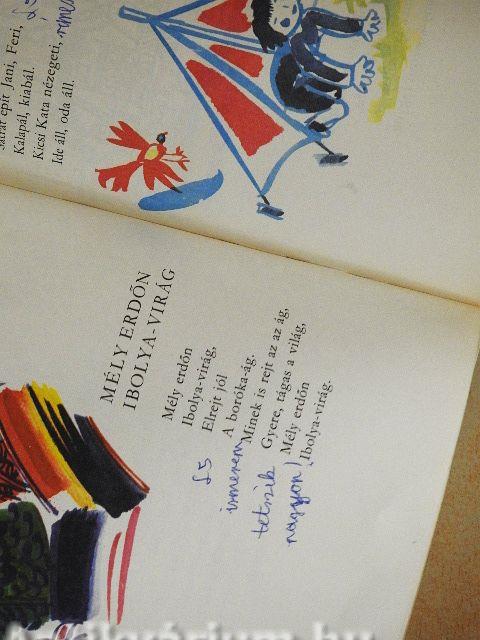 Sátrat épít Jani, Feri,
Kalapál, kiabál.
Kicsi Kata nézegeti,
Ide áll, oda áll.
MÉLY ERDŐN
IBOLYA-VIRÁG
Mély erdőn
Ibolya-virág,
Elrejt jól
A boróka-ág.
Minek is rejt az az ág,
Gyere, tágas a világ,
Mély erdőn
Ibolya-virág.
L5
ismerem
tetszik
nagyon!